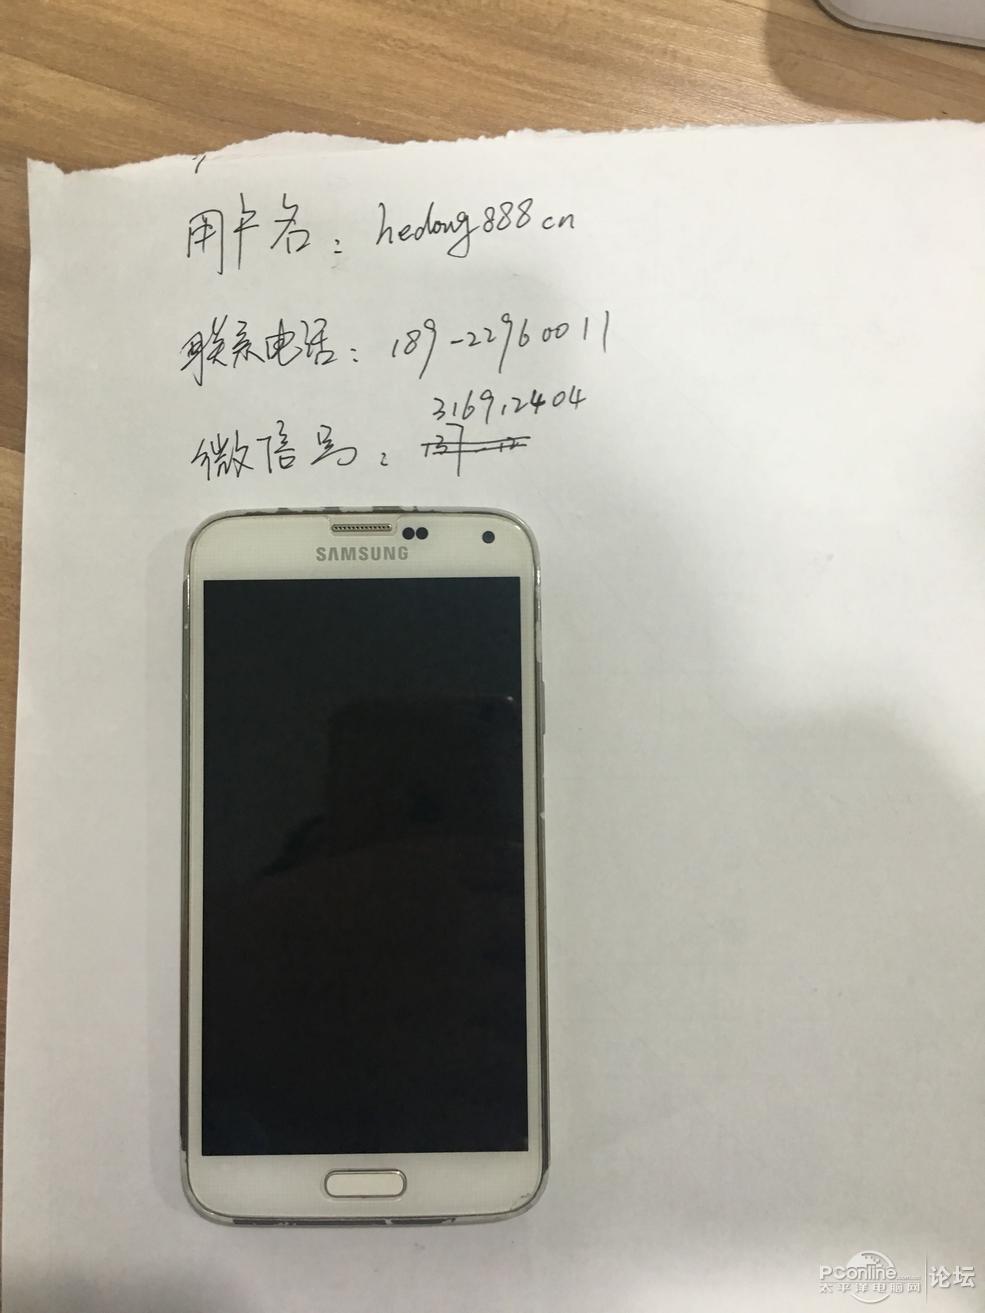 用户名：hedong888cn
联系电话：189-22960011
316912404
微信号：
SAMSUNG
PConline.com.cn
太平洋电脑网
论坛